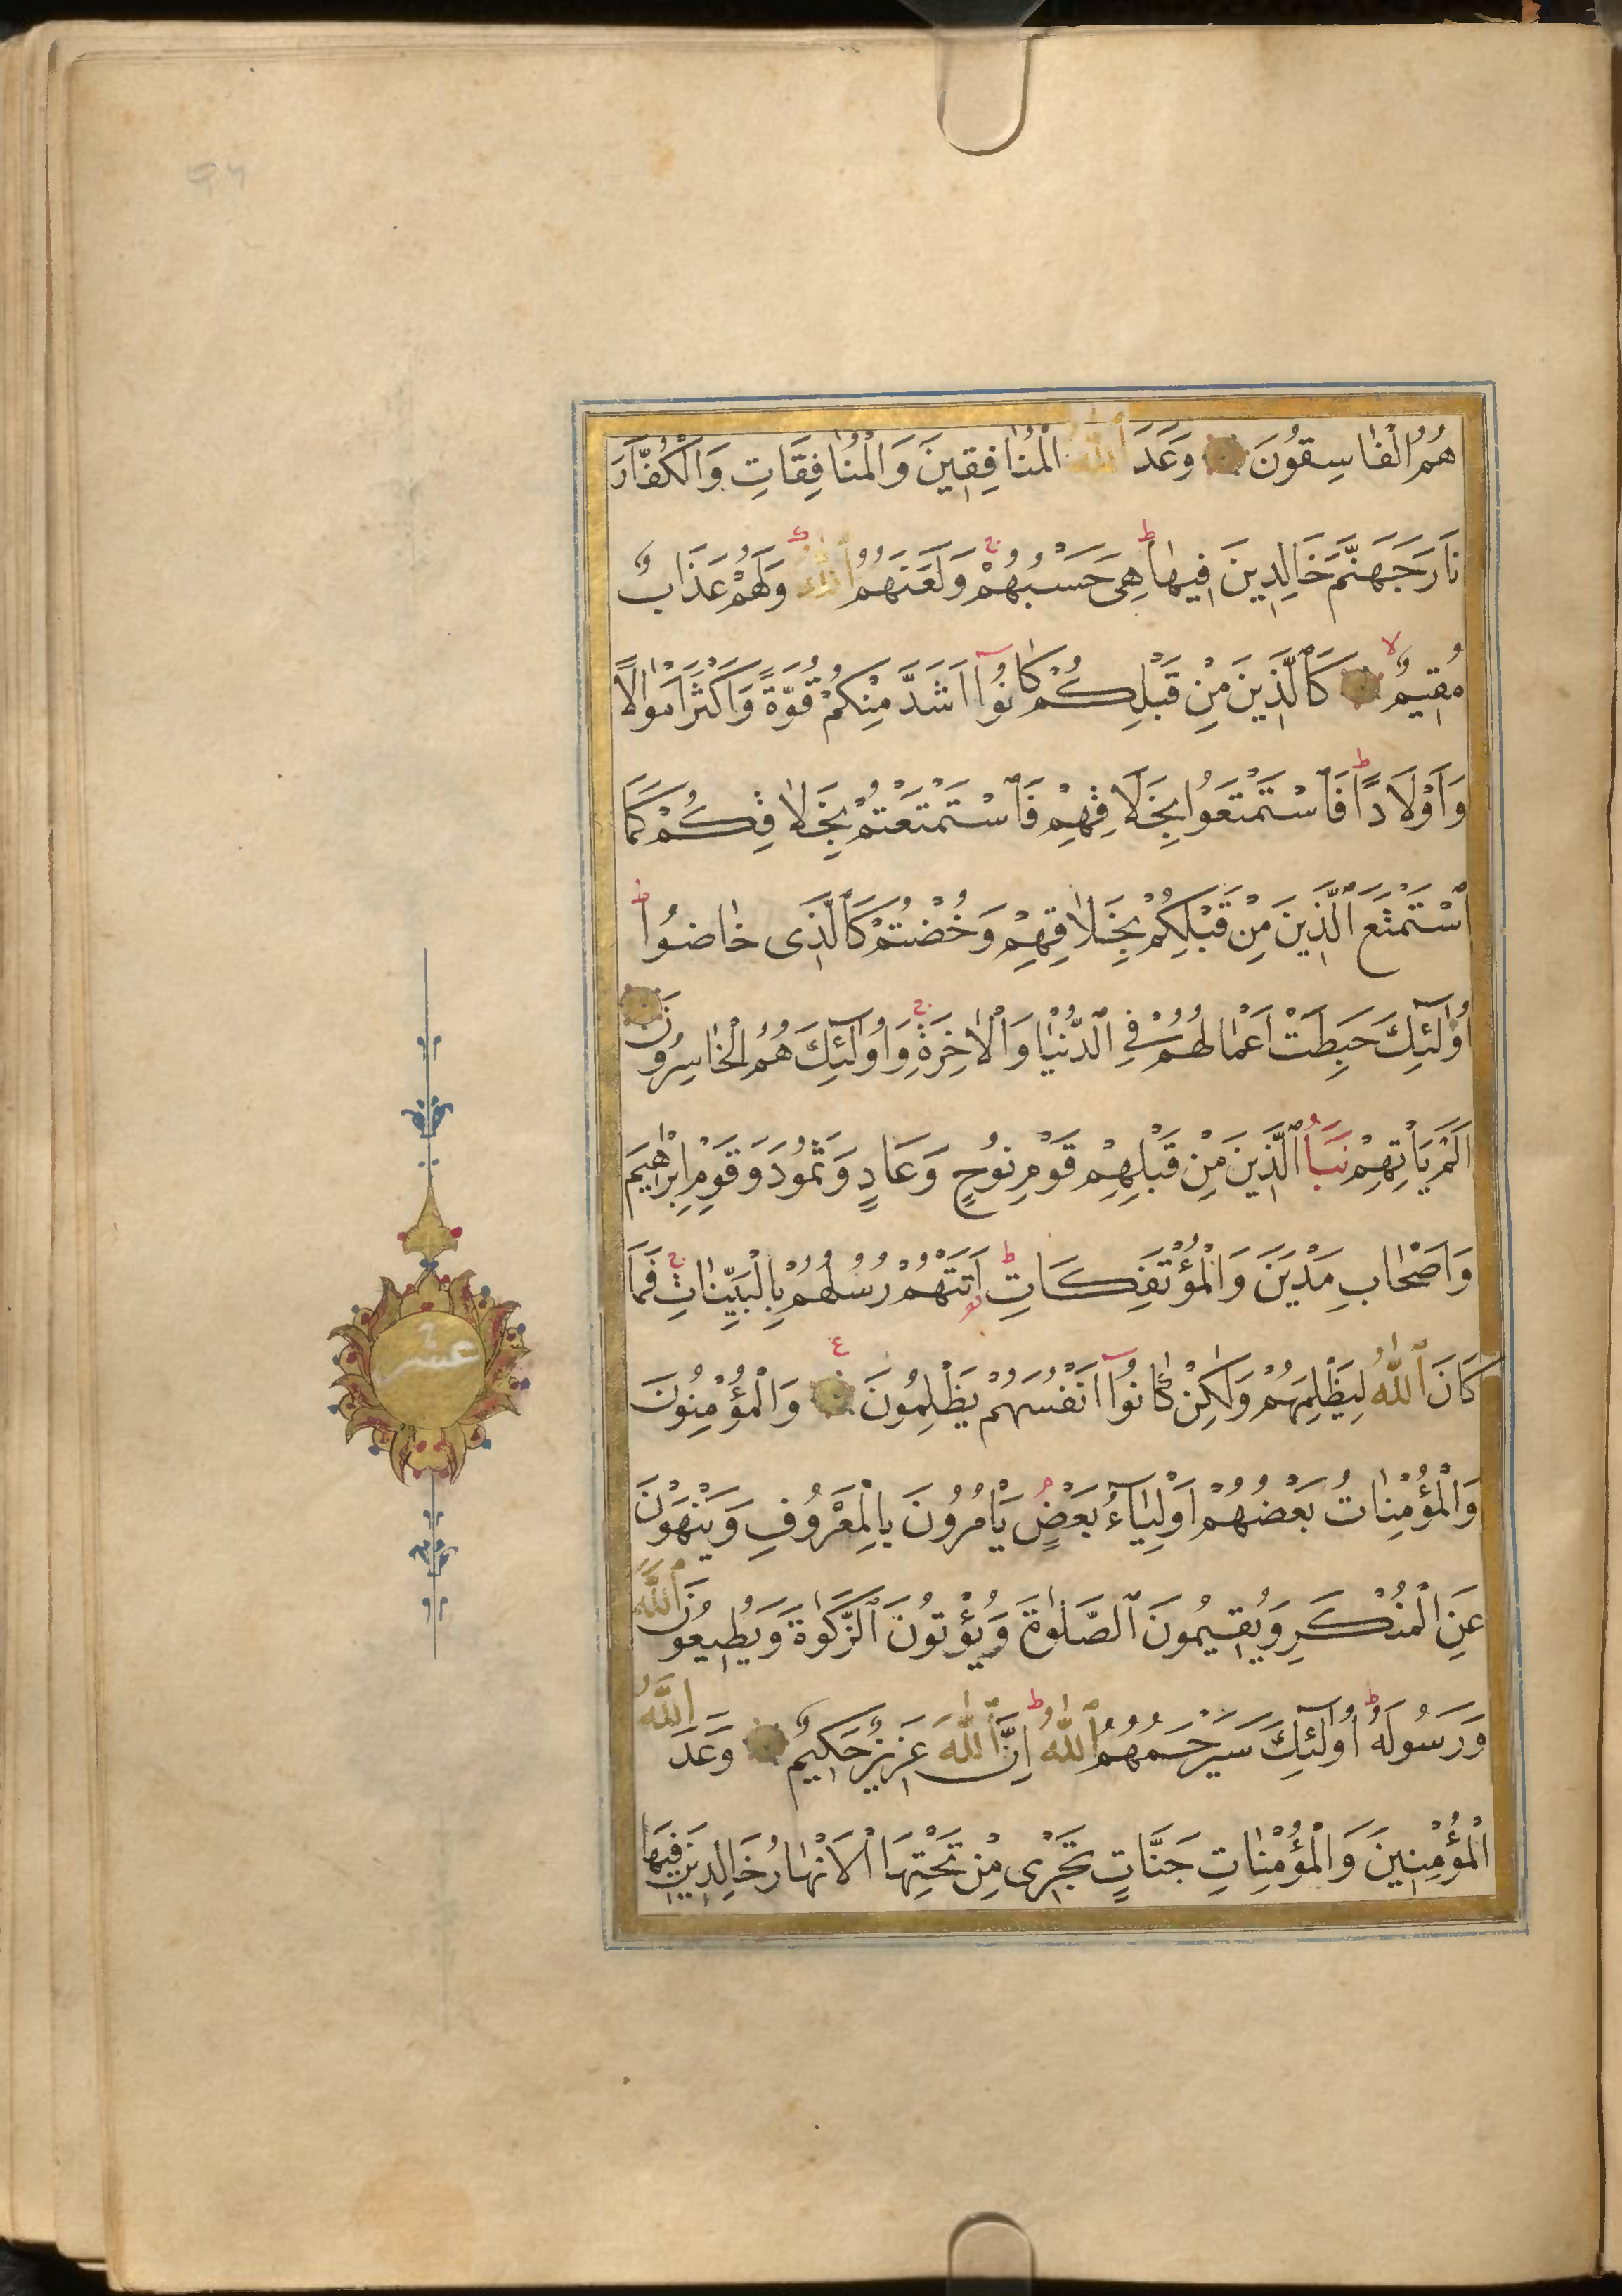 هُمُ الْفَاسِقُونَ وَعَدَ ٱللّٰهُ الْمُنَافِقِينَ وَالْمُنَافِقَاتِ وَالْكُفَّارَ
نَارَ جَهَنَّمَ خَالِدِينَ فِيهَا ط هِىَ حَسْبُهُمْ ج وَلَعَنَهُمُ ٱللّٰهُ وَلَهُمْ عَذَابٌ
مُقِيمٌ لا كَٱلَّذِينَ مِنْ قَبْلِكُمْ كَانُوٓا اَشَدَّ مِنْكُمْ قُوَّةً وَاَكْثَرَ اَمْوَالًا
وَاَوْلَادًا ط فَٱسْتَمْتَعُوا بِخَلَاقِهِمْ فَٱسْتَمْتَعْتُمْ بِخَلَاقِكُمْ كَمَا
ٱسْتَمْتَعَ ٱلَّذِينَ مِنْ قَبْلِكُمْ بِخَلَاقِهِمْ وَخُضْتُمْ كَٱلَّذِى خَاضُوا ط
اُولٰٓئِكَ حَبِطَتْ اَعْمَالُهُمْ فِي ٱلدُّنْيَا وَالْاٰخِرَةِ ج وَاُولٰٓئِكَ هُمُ الْخَاسِرُونَ
اَلَمْ يَأْتِهِمْ نَبَأُ ٱلَّذِينَ مِنْ قَبْلِهِمْ قَوْمِ نُوحٍ وَعَادٍ وَثَمُودَ وَقَوْمِ اِبْرٰهِيمَ
وَاَصْحَابِ مَدْيَنَ وَالْمُؤْتَفِكَاتِ ط اَتَتْهُمْ رُسُلُهُمْ بِالْبَيِّنَاتِ ج فَمَا
كَانَ ٱللّٰهُ لِيَظْلِمَهُمْ وَلٰكِنْ كَانُوٓا اَنْفُسَهُمْ يَظْلِمُونَ ع وَالْمُؤْمِنُونَ
وَالْمُؤْمِنَاتُ بَعْضُهُمْ اَوْلِيَآءُ بَعْضٍ م يَأْمُرُونَ بِالْمَعْرُوفِ وَيَنْهَوْنَ
عَنِ الْمُنْكَرِ وَيُقِيمُونَ ٱلصَّلٰوةَ وَيُؤْتُونَ ٱلزَّكٰوةَ وَيُطِيعُونَ ٱللّٰهَ
وَرَسُولَهُ ط اُولٰٓئِكَ سَيَرْحَمُهُمُ ٱللّٰهُ ط اِنَّ ٱللّٰهَ عَزِيزٌ حَكِيمٌ وَعَدَ اللّٰهُ
الْمُؤْمِنِينَ وَالْمُؤْمِنَاتِ جَنَّاتٍ تَجْرِى مِنْ تَحْتِهَا الْاَنْهَارُ خَالِدِينَ فِيهَا
عشر